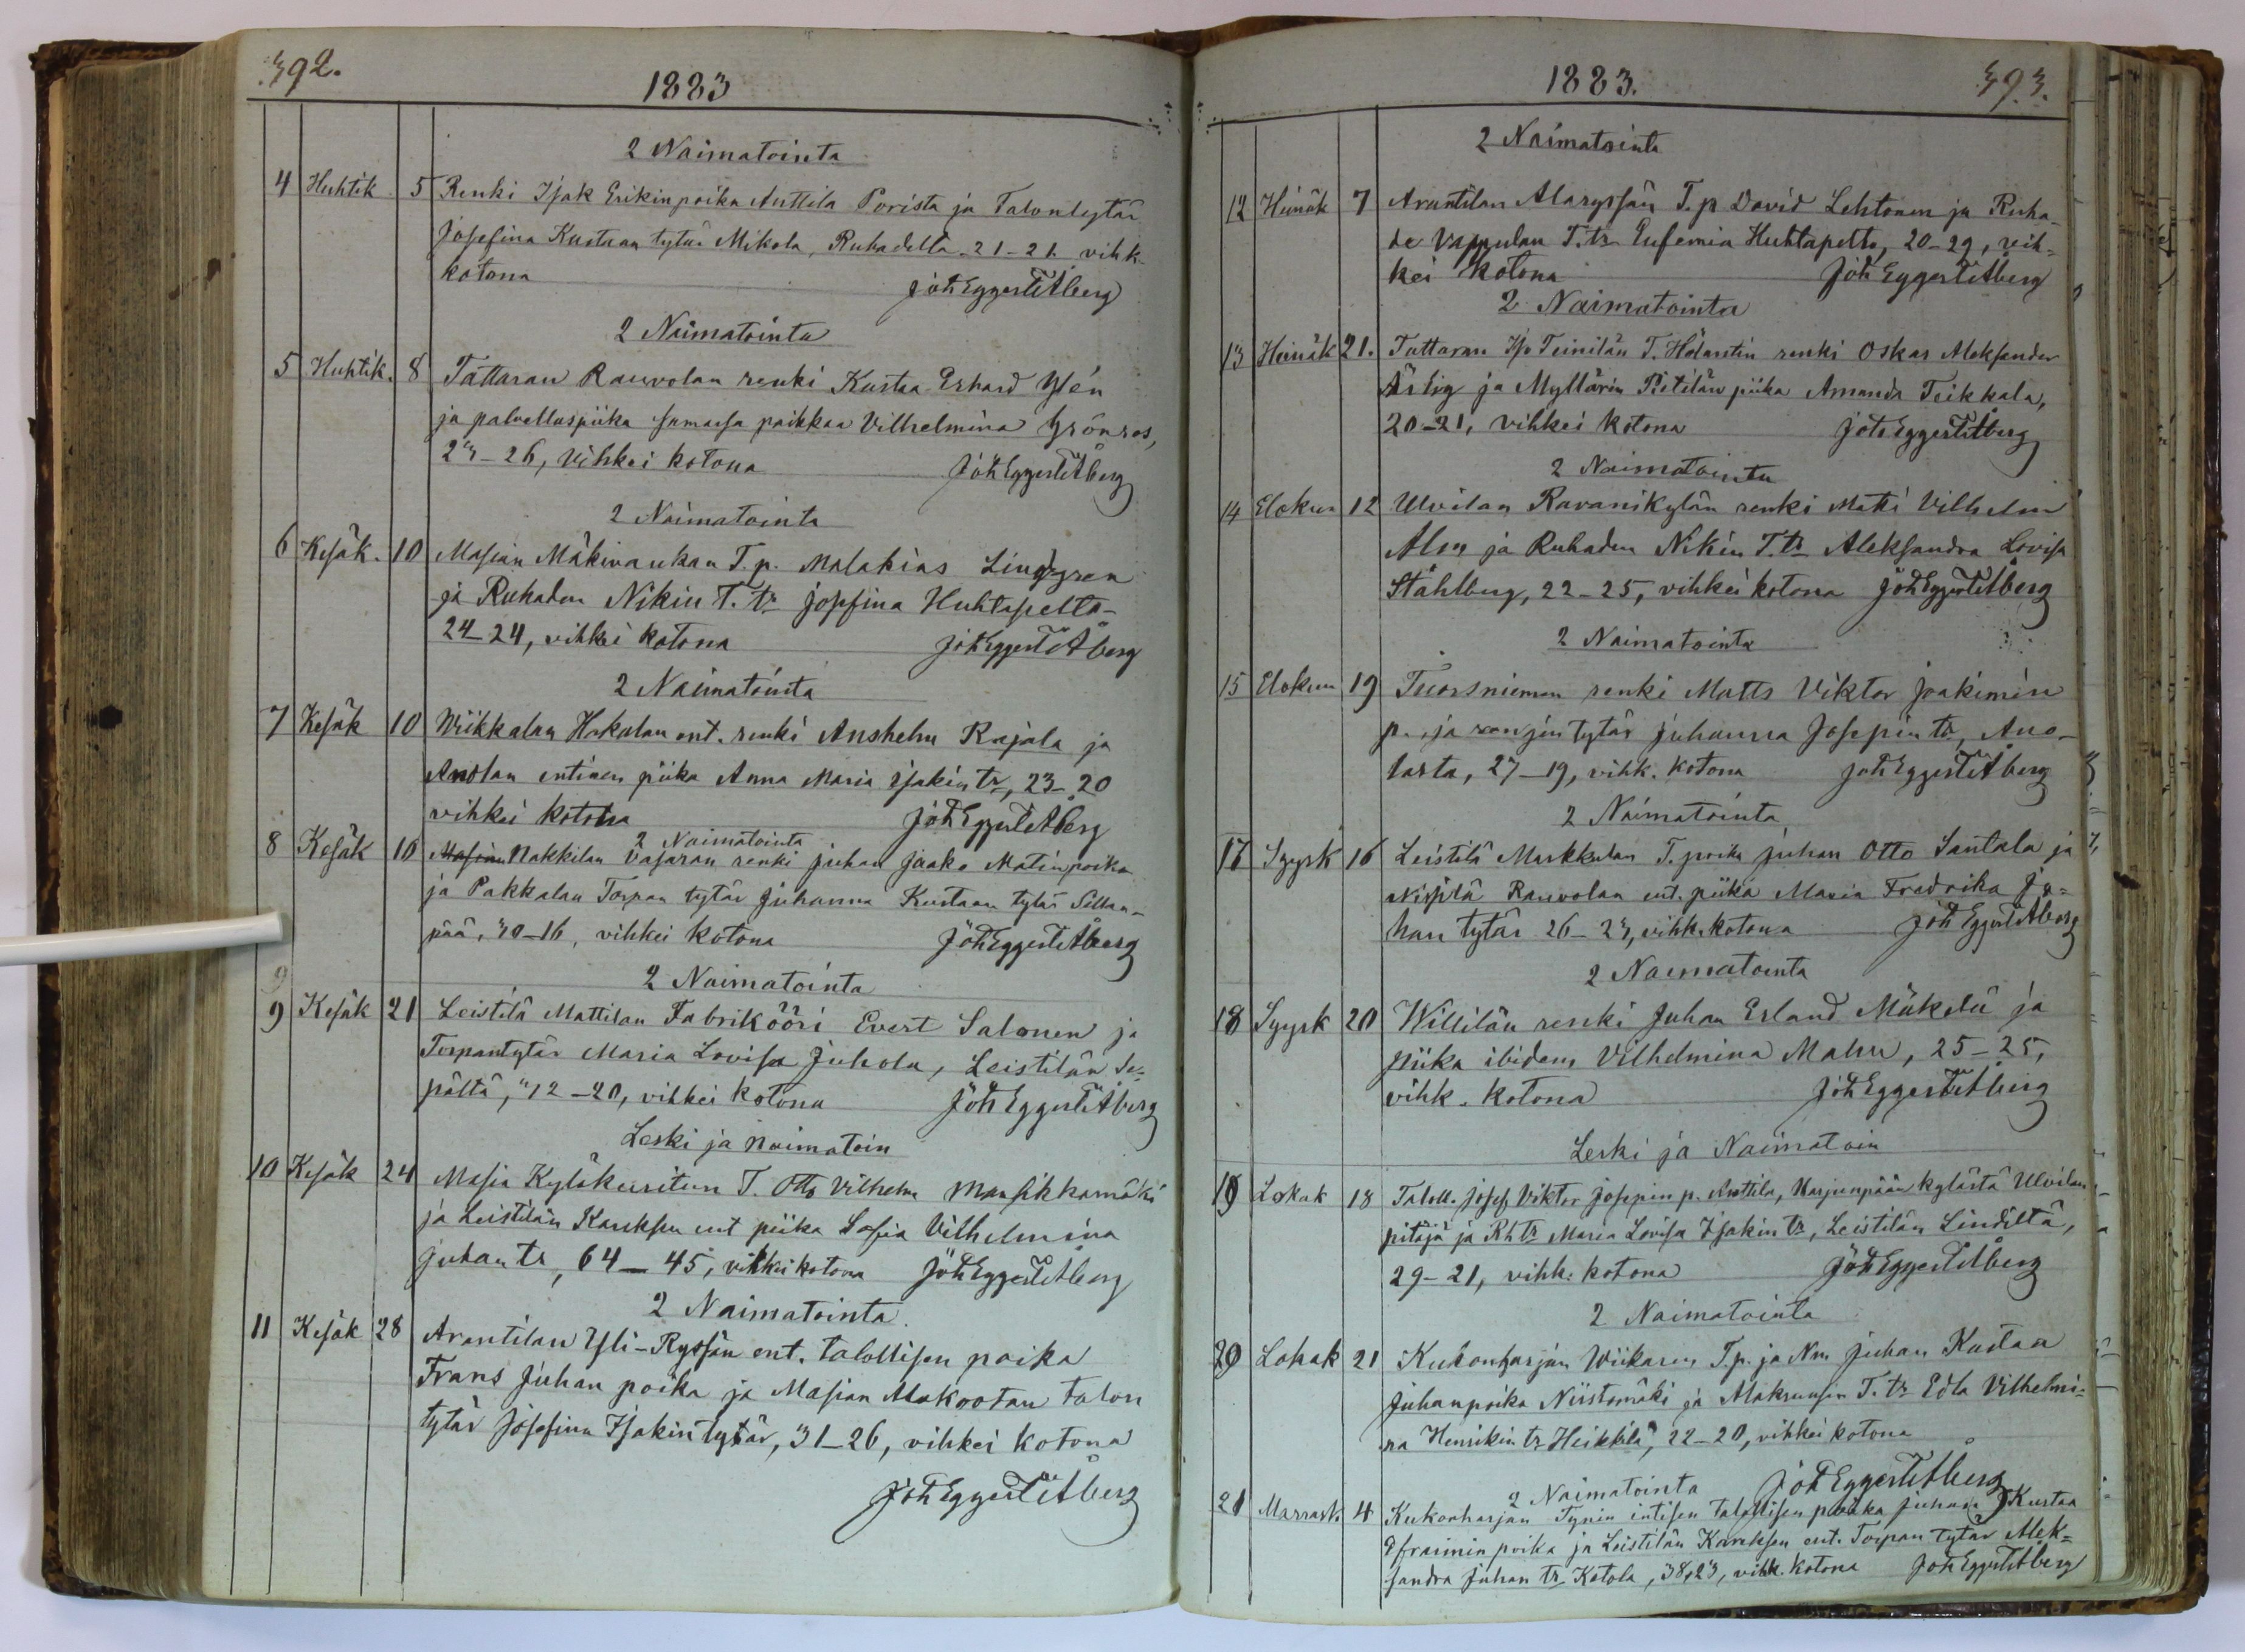 392.
1883
2 Naimatointa
4 Huhtik 5 Renki Isak Erikinpoika Anttila Porista ja Talontytär
Josefina Kustaan tytär Mikola, Ruhadelta 21-21. vihk
kotona Joh Eggert Tit Åberg
2 Naimatointa
5 Huhtik. 8 Tattaran Rauvolan renki Kustaa Erhard Wén
ja palvelluspiika samassa paikkaa Vilhelmina Grönros,
23-26, vihkei kotona Joh Eggert Tit Åberg
2 Naimatointa
6 Kesäk. 10 Masian Mäkivaukan T. p. Malakias Lindgren
ja Ruhaden Nikin T. tr Josefina Huhtapelto
24-24, vihkei kotona Joh Eggert Tit Åberg
2 Naimatointa
7 Kesäk 10 Wiikkalan Hakalan ent. renki Anshelm Rajala ja
Anolan entinen piika Anna Maria Isakin tr, 23-20
vihkei kotona Joh Eggert Tit Åberg
2 Naimatointa
8 Kesäk 10 Masian Nakkilan Vasaran renki Juhan Jaako Matinpoika
ja Pakkalan Torpan tytär Juhanna Kustaan tytär Sillan-
pää, 30-16, vihkei kotona Joh Eggert Tit Åberg
2 Naimatointa
9
9 Kesäk 21 Leistilä Mattilan Fabrikööri Evert Salonen ja
Torpantytär Maria Lovisa Juhola, Leistilän Se-
pältä, 42-20, vihkei kotona Joh Eggert Tit Åberg
Leski ja Naimatoin
10 Kesäk 24 Masia Kyläkuuitun T. Otto Vilhelm Mansikkamäki
ja Leistilän Kareksen ent piika Sofia Vilhelmina
Juhan tr, 64-45, vihkei kotona Joh Eggert Tit Åberg
2 Naimatointa.
11 Kesäk 28 Arantilan Yli-Ryssän ent. talollisen poika
Frans Juhan poika ja Masian Alakootan talon
tytär Josefina Isakin tytär, 31-26, vihkei kotona
Joh Eggert Tit Åberg
1883.
393.
2 Naimatointa
12 Heinäk 7 Arantilan Alaryssän T. p David Lehtonen ja Ruha-
de Vappulan T. tr Eufemia Huhtapelto, 20-29, vih-
kei kotona Joh Eggert Tit Åberg
2 Naimatointa
13 Heinäk 21. Tattaran Iso Teinilän T. renki Oskar Aleksander
ja Myllärin Pietilän piika Amanda Teikkala,
20-21, vihkei kotona Joh Eggert Tit Åberg
2 Naimatointa
14 Elokuu 12 Ulvilan Ravanikylän renki Matti Vilhelm
Alen ja Ruhaden Nikin T. tr Aleksandra Lovisa
Ståhlberg, 22-25, vihkei kotona Joh Eggert Tit Åberg
2 Naimatointa
15 Elokuu 19 Tuorsniemen renki Matts Viktor Joakimin
p. ja rengin tytär Juhanna Josepin tr, Ano-
lasta, 27-19, vihk. kotona Joh Eggert Tit Åberg
2 Naimatointa
17 Syysk 16 Leistilä Markkulan T. poika Juhan Otto Santala ja
Rauvolan ent. piika Maria Fredrika Ju-
han tytär 26-23, vihk. kotona Joh Eggert Tit Åberg
2 Naimatointa
18 Syysk 20 Willilän renki Juhan Erland Mäkelä ja
piika ibidem Vilhelmina Malm, 25-25,
vihk. kotona Joh Eggert Tit Åberg
Leski ja Naimatoin
19 Lokak 18 Taloll. Josef Viktor Josepin p. Anttila, Harjunpään kylästä Ulvilan
pitäjä ja Rh tr Maria Lovisa Isakin tr, Leistilän Lindiltä,
29-21, vihk: kotona Joh Eggert Tit Åberg
2 Naimatointa
20 Lokak 21 Kukonharjan Wiikaren T. p. ja Nm Juhan Kustaa
Juhanpoika Niistomäki ja T. tr Edla Vilhelmi-
na Henrikin tr Heikkilä, 22-20, vihkei kotona
2 Naimatointa Joh Eggert Tit Åberg
21 Marrask. 4 Kukonharjan Tynin entisen talollisen poika Juhan Kustaa
Efraimin poika ja Leistilän Kareksen ent. Torpan tytär Alek-
sandra Juhan tr Ketola, 38,23, vihk. kotona Joh Eggert Tit Åberg